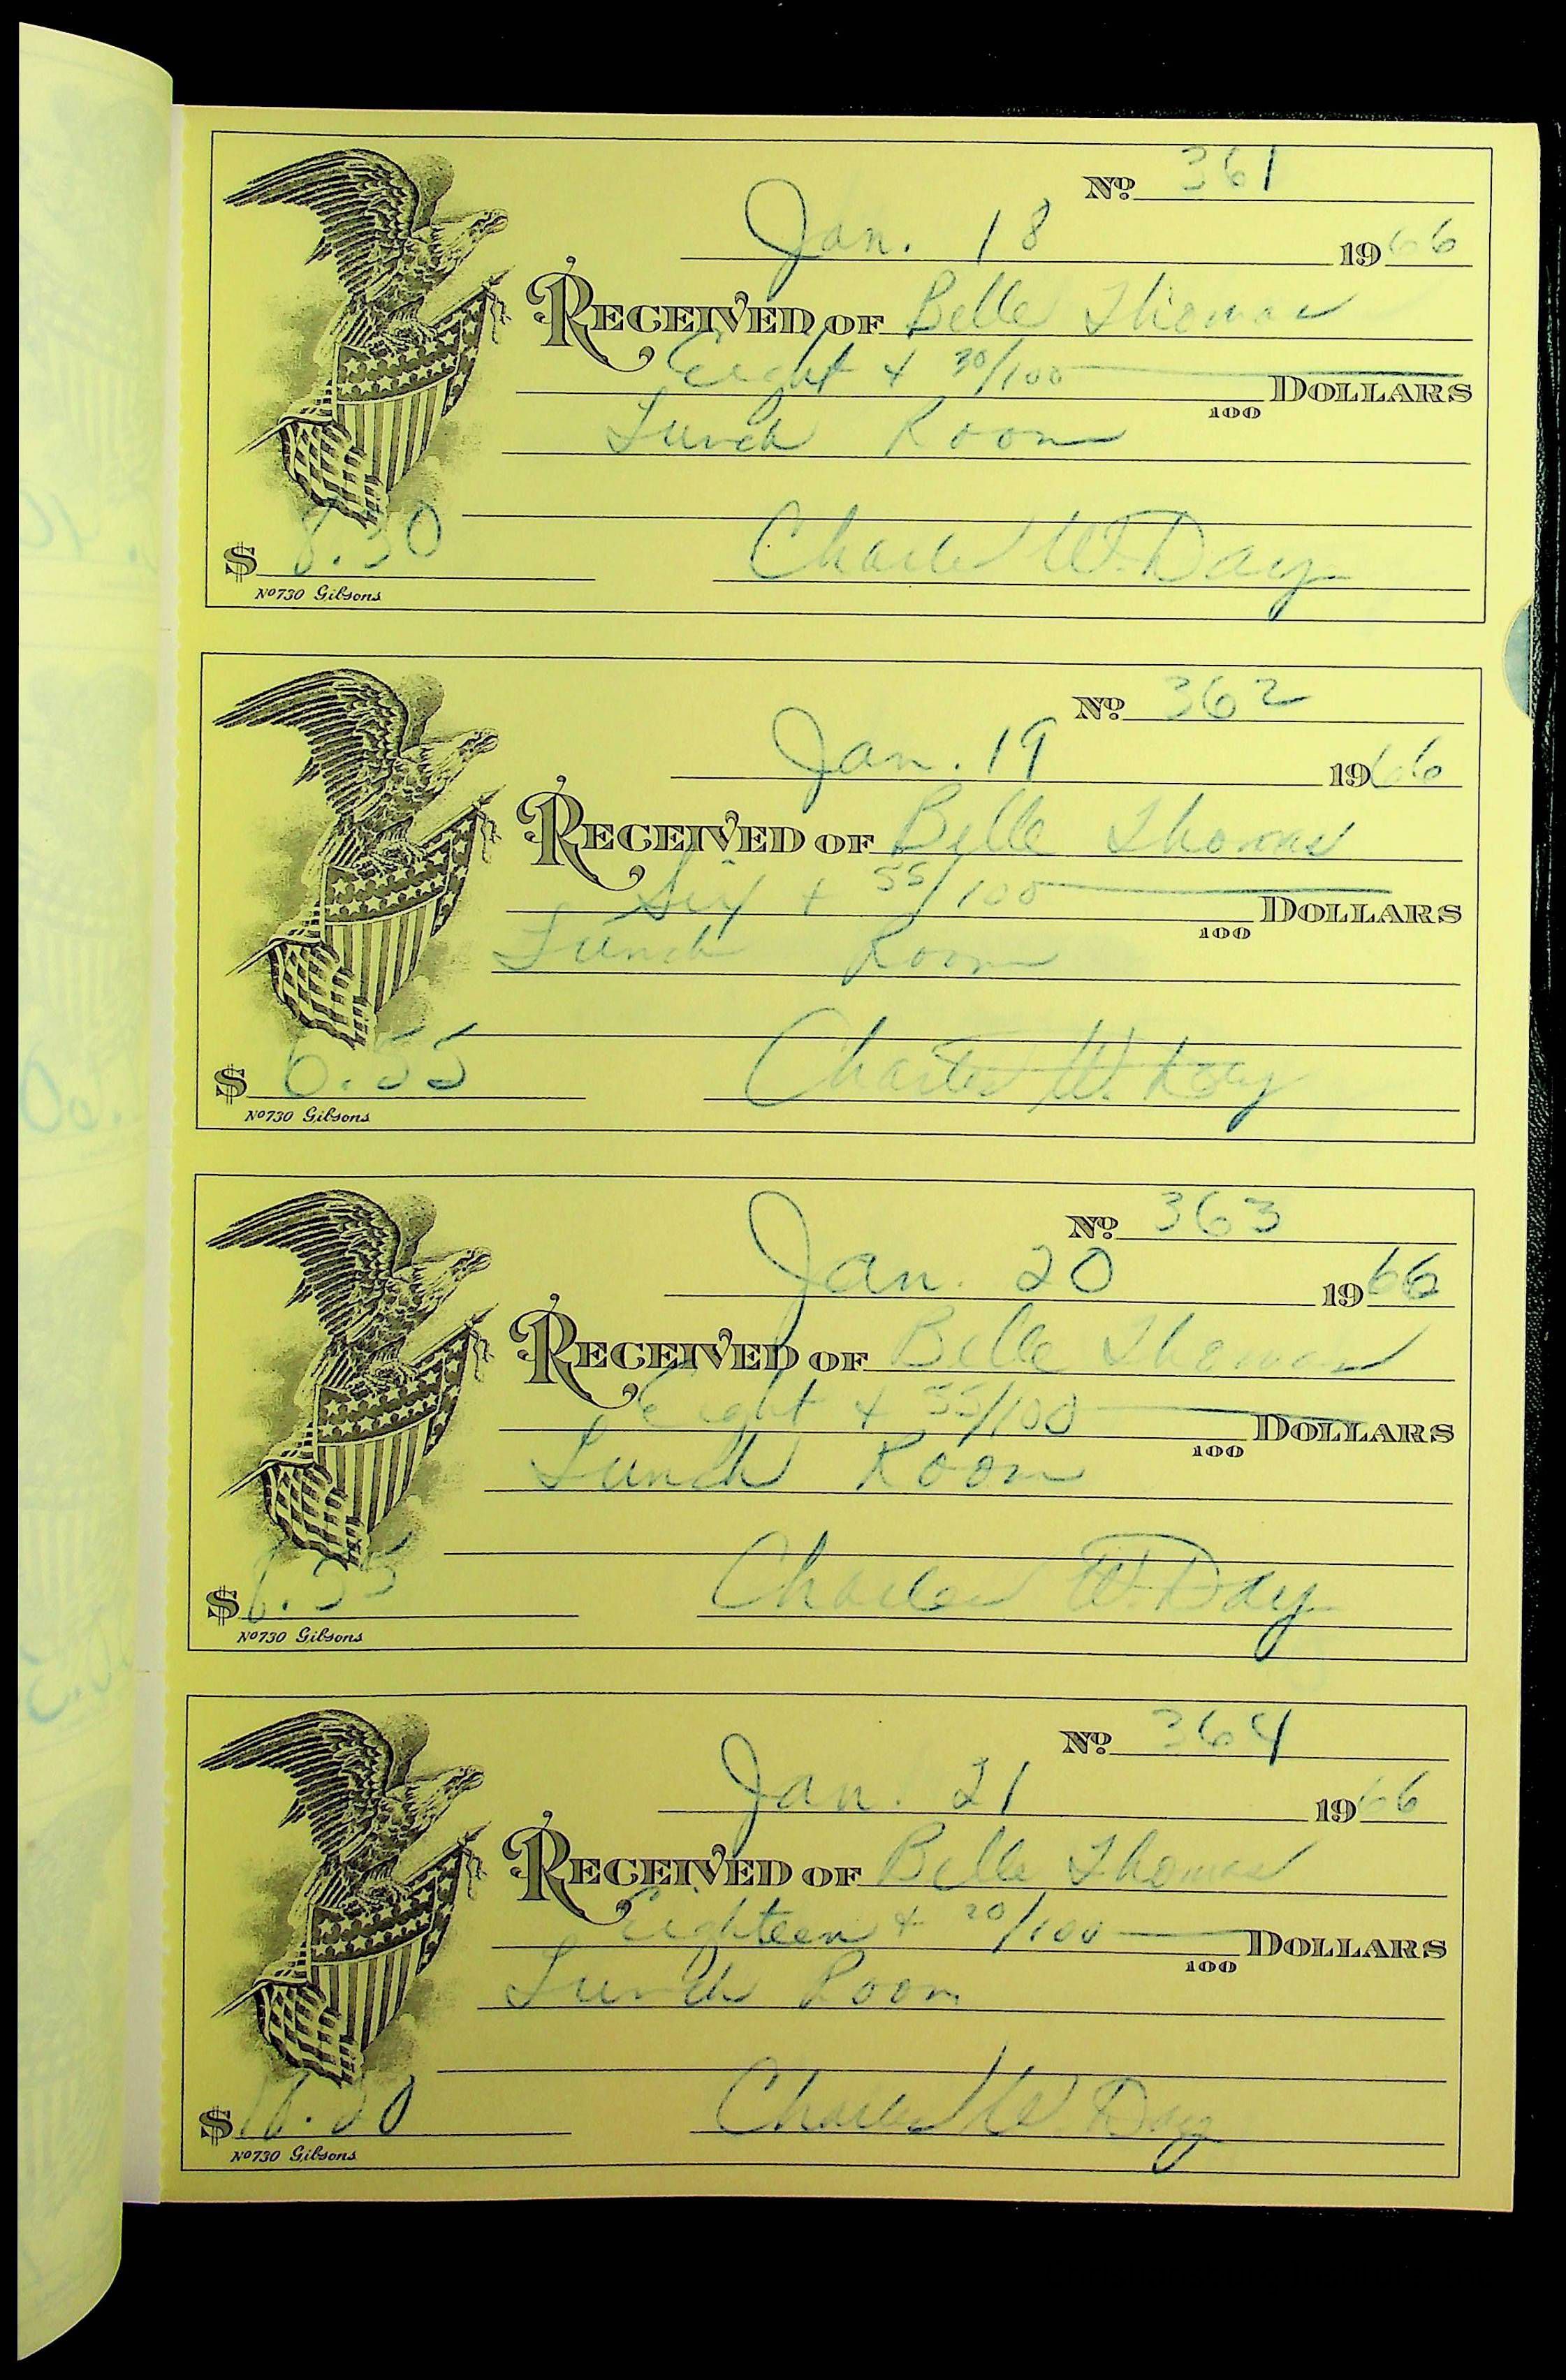 Nº 361
Jan. 18 1966
RECEIVED OF Belle Thomas
Eight + 30/100 DOLLARS
100
Lunch Room
$ 8.30 Charles W. Day
Nº 730 Gibsons
Nº 362
Jan. 19 1966
RECEIVED OF Belle Thomas
Six + 55/100 DOLLARS
100
Lunch Room
$ 6.55 Charles W. Day
Nº 730 Gibsons
Nº 363
Jan. 20 1966
RECEIVED OF Belle Thomas
Eight + 55/100 DOLLARS
100
Lunch Room
$ 8.55 Charles W. Day
Nº 730 Gibsons
Nº 364
Jan. 21 1966
RECEIVED OF Belle Thomas
Eighteen + 20/100 DOLLARS
100
Lunch Room
$ 18.20 Charles W. Day
Nº 730 Gibsons